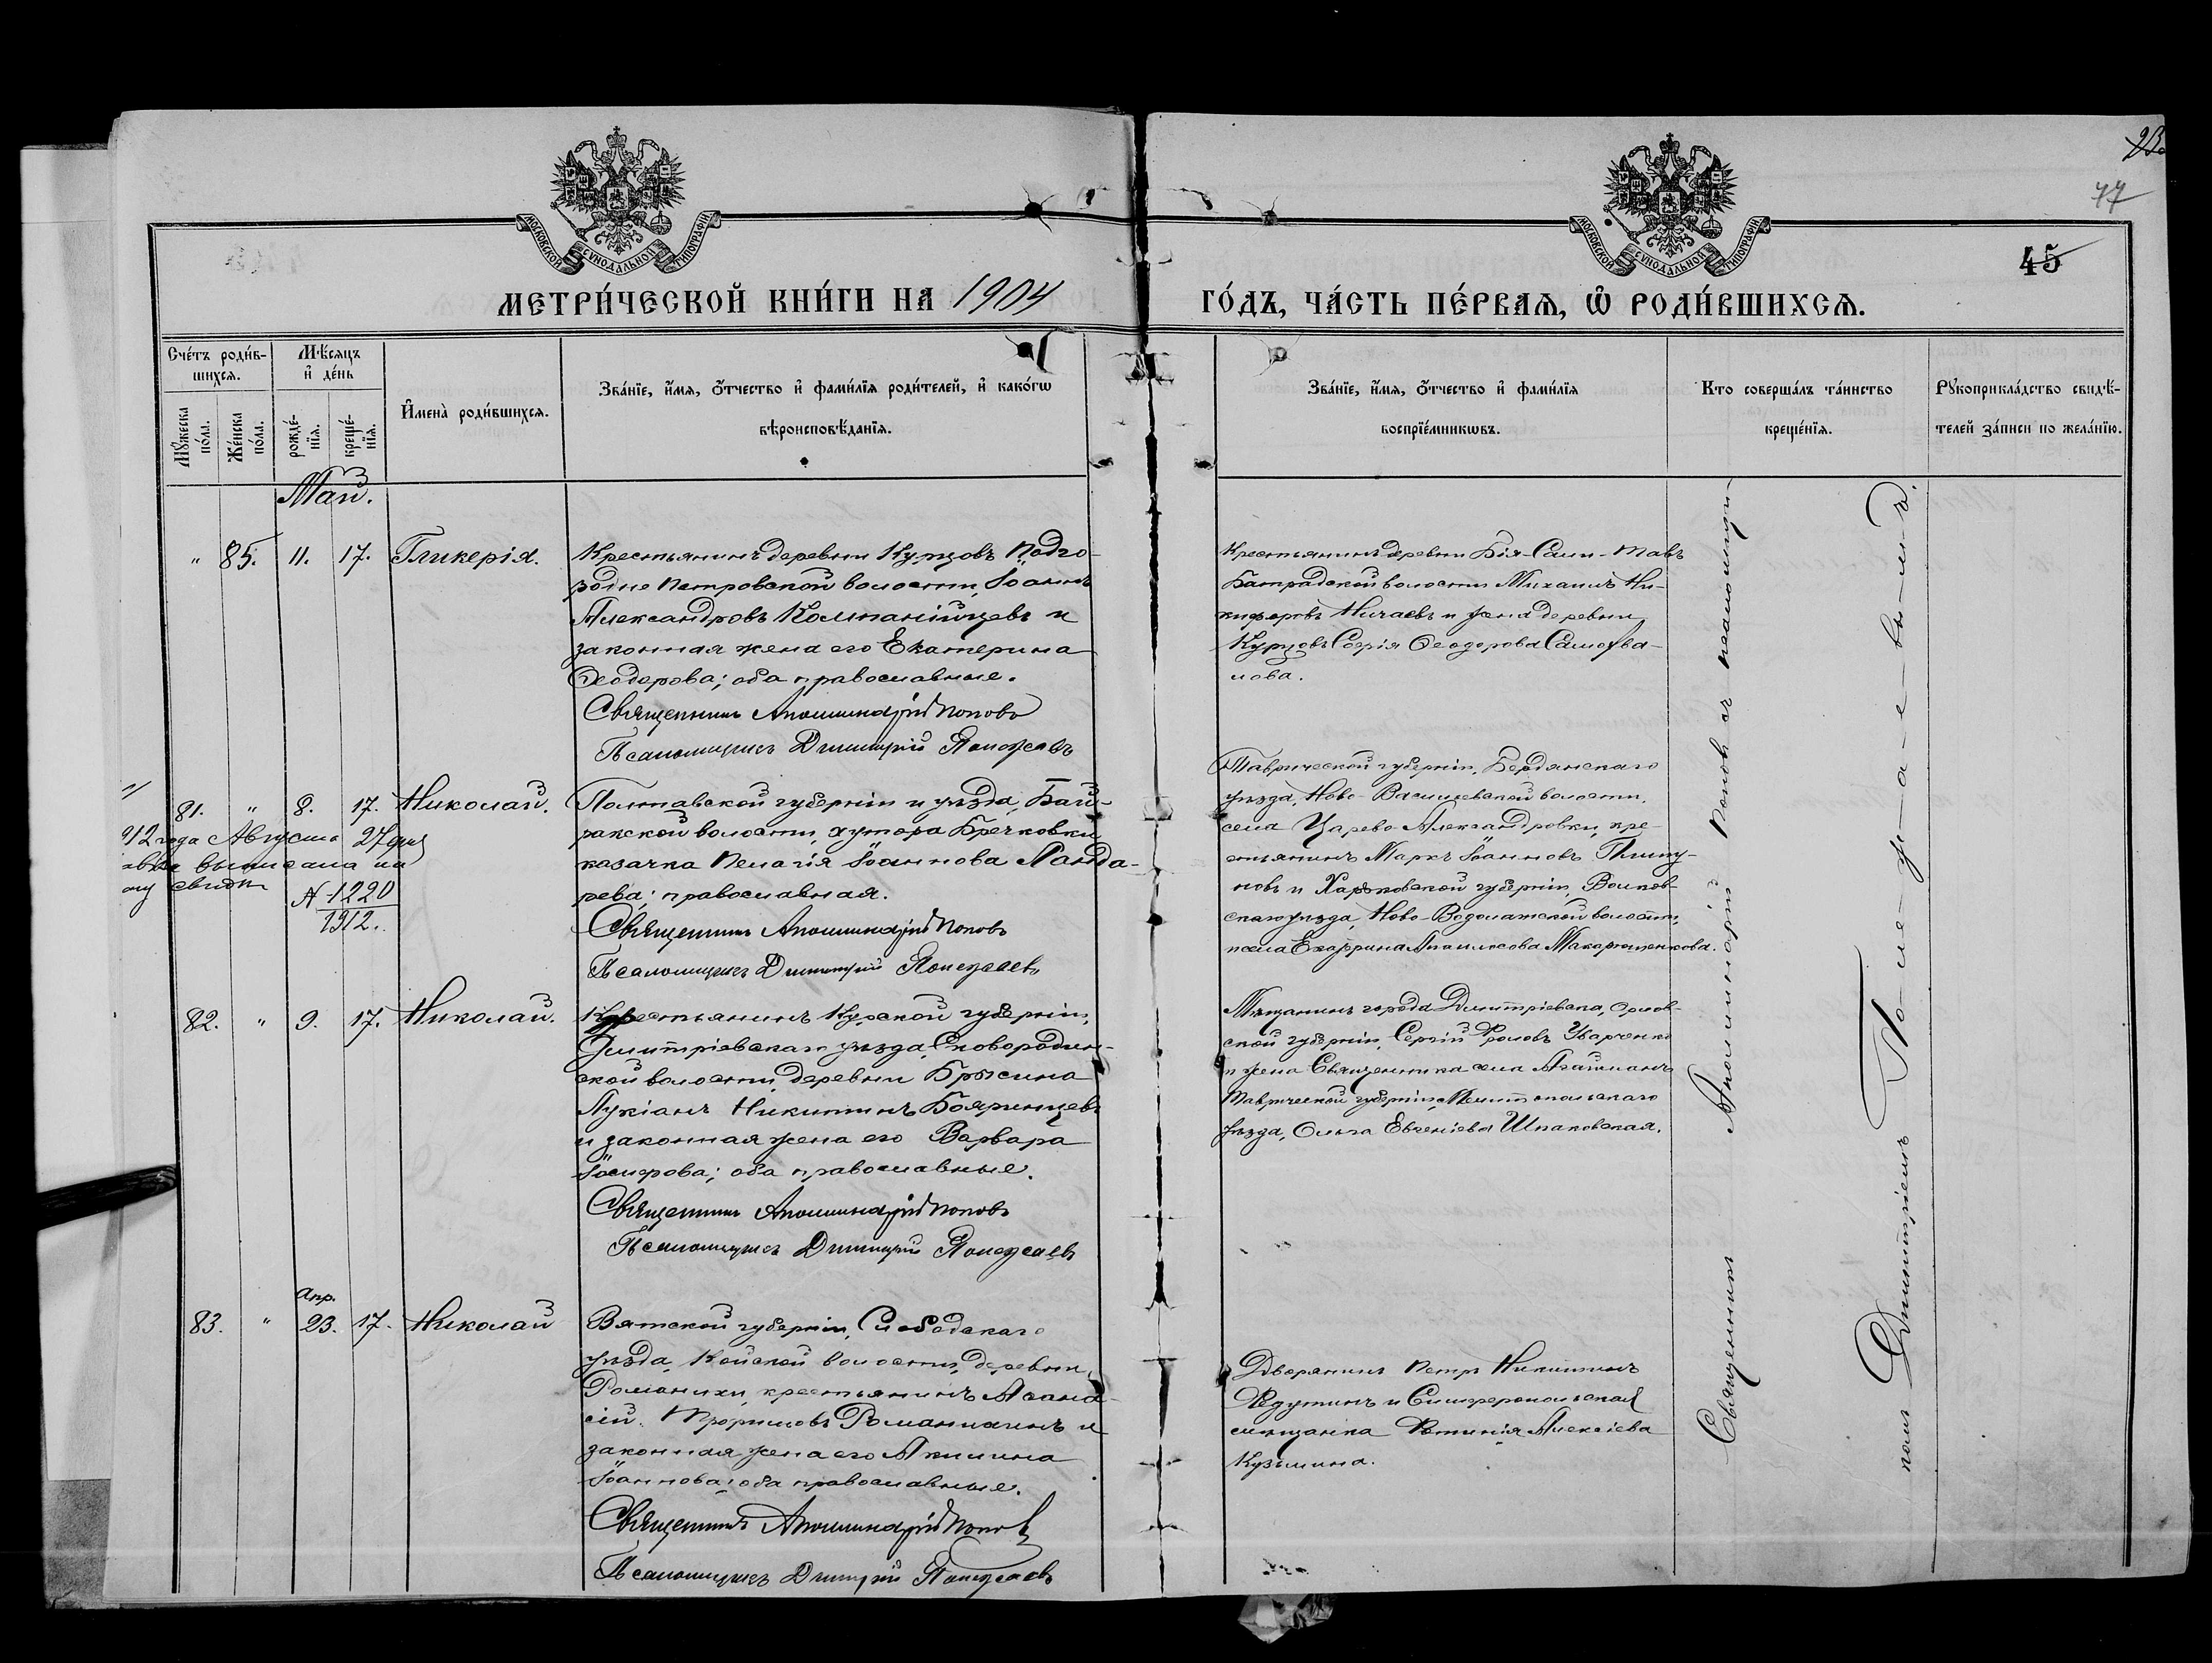 МОСКОВСКОЙ СѴНОДАЛЬНОЙ ТИПОГРАФІИ
МОСКОВСКОЙ СѴНОДАЛЬНОЙ ТИПОГРАФІИ
47
45
МЕТРИ́ЧЕСКОЙ КНИ́ГИ НА 1904
ГО́ДЪ, ЧА́СТЬ ПЕ́РВАѦ, Ѡ РОДИ́ВШИХСѦ.
Сче́тъ роди́вшихсѧ.
Мѣ́сѧцъ и҆ де́нь
Мꙋ́жеска по́ла.
Же́нска по́ла.
рожде́нїѧ.
креще́нїѧ.
И҆мена̀ роди́вшихсѧ.
Зва́нїе, и҆́мѧ, ѻ҆́тчество и҆ фами́лїѧ роди́телей, и҆ како́гѡ
вѣроисповѣ́данїѧ.
Зва́нїе, и҆́мѧ, ѻ҆́тчество и҆ фами́лїѧ
воспрїе́мникѡвъ.
Кто̀ соверша́лъ та́инство
креще́нїѧ.
Рꙋкоприкла́дство свидѣ́-
телей за́писи по жела́нїю.
Май.
" 85. 11. 17. Гликерія.
Крестьянинъ деревни Курцовъ Подго-
родне Петровской волости, Іоаннъ
Александровъ Компаніицевъ и
законная жена его Екатерина
Ѳеодорова; оба православные.
Священникъ Аполлинарій Поповъ
Псаломщикъ Димитрій Полежаевъ
Крестьянинъ деревни Бія-Сали-Тавъ
Михаилъ Ни-
кифоровъ Ничаевъ и жена деревни
Курцовъ Софія Ѳеодорова Самохва-
лова.
81. " 8. 17. Николай.
912 года Августа 27 дня
выписана на
N 1220
1912.
Полтавской губерніи и уѣзда, Бай-
ракской волости, хутора Бречковки
казачка Пелагія Іоаннова Ланда-
рева; православная.
Священникъ Аполлинарій Поповъ
Псаломщикъ Димитрій Полежаевъ
Таврической губерніи, Бердянскаго
уѣзда, Ново-Василевской волости,
села Царево-Александровки, кре-
стьянинъ Маркъ Іоанновъ
и Харьковской губерніи, Волков-
скаго уѣзда, Ново-Водолажской волости,
Макарюшенкова.
82. " 9. 17. Николай.
Крестьянинъ Курской губерніи,
Димитріевскаго уѣзда, Сковородин-
ской волости, деревни Брысина
Лукіанъ Никитинъ Бояринцевъ
и законная жена его Варвара
Іосифова; оба православные.
Священникъ Аполлинарій Поповъ
Псаломщикъ Димитрій Полежаевъ
Мѣщанинъ города Димитріевска, Орлов-
ской губерніи, Сергій Фроловъ Уварченко
и жена Священника села Агайманъ
Таврической губерніи, Мелитопольскаго
уѣзда, Ольга Евгеніева Шпаковская.
Апр.
83. " 23. 17. Николай
Вятской губерніи, Слободскаго
уѣзда, Койской волости, деревни
Романихи, крестьянинъ Аѳана-
сій Трофимовъ Романихинъ и
законная жена его Акилина
Іоаннова; оба православные.
Священникъ Аполлинарій Поповъ
Псаломщикъ Димитрій Полежаевъ
Дворянинъ Петръ Никитинъ
Редутинъ и Симферопольская
мѣщанка Фотинія Алексіева
Кузьмина.
Священникъ Аполлинарій Поповъ съ псаломщи-
комъ Димитріемъ По-ле-ж-а-е-вы-м-ъ.